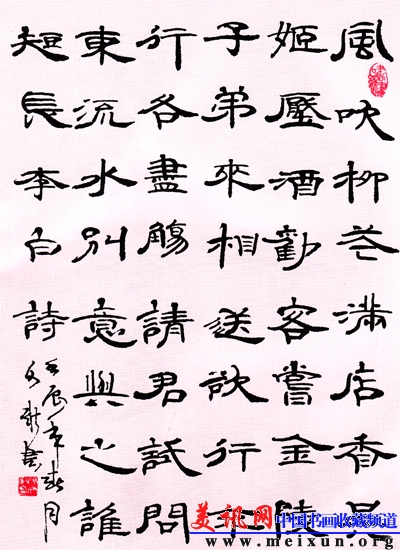 風吹柳花滿店香吳
姬壓酒勸客嘗金陵
子弟來相送欲行不
行各盡觴請君試問
東流水別意與之誰
短長李白詩
壬辰年春月
書
美讯网 中国书画收藏频道
www.meixun.org